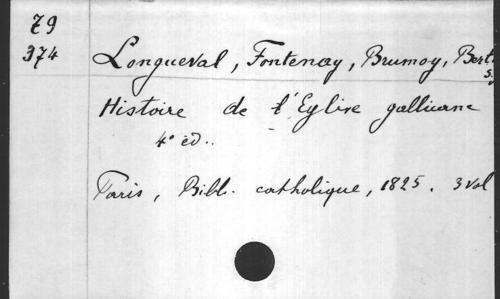 79
374
Longueval, Fontenay, Brumoy, Bert
s.j
Histoire de l'Eglise gallicane
4e éd..
Paris, Bibl. catholique, 1825. 3 vol